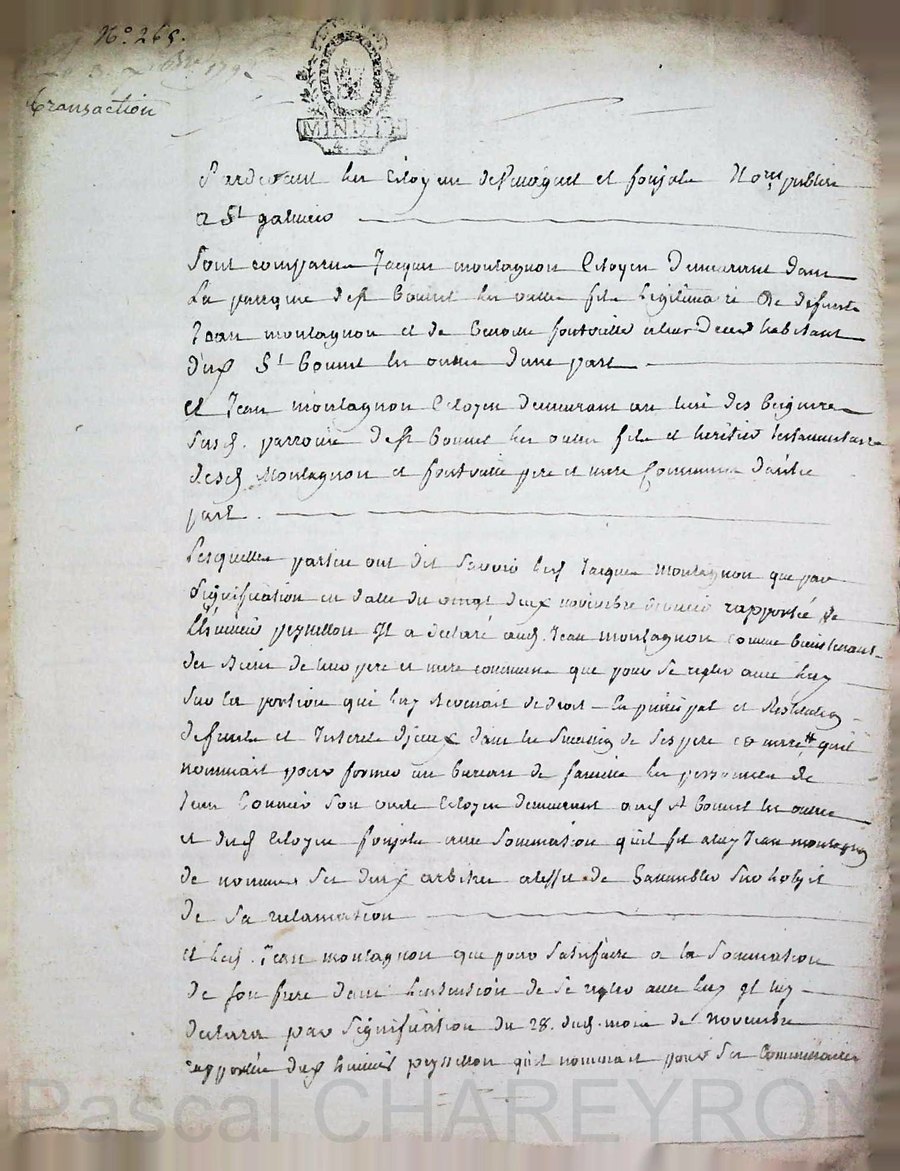 N° 265.
transaction
MINUTE
4. S.
Pardevant les Citoyens et fonjols No.res publics
a St galmier
Sont comparus Jacques montagnon Citoyen Demeurant dans
La parroisse dest Bonnet les oulles fils legitime de defunts
Jean montagnon et de Benoitte fontvieille a leur deces habitant
dud St Bonnet les oulles d'une part
et Jean montagnon Citoyen demeurant au lieu des
susd. parroisse dest Bonnet les oulles fils et heritier testamentaire
desd Montagnon et fontvieille pere et mere Communs d'autre
part.
Lesquelles parties ont dit Savoir led Jacques montagnon que par
Signification en datte du vingt deux novembre dernier rapportée de
L'huissier peyrellon Il a declaré aud. Jean montagnon comme bientenant
des Biens de leurs pere et mere communs que pour se regler avec luy
sur la portion qui luy revenait de droit en principal et Restitution
de fruits et Interets d'jceux dans les Succession de ses pere et mere qu'il
nommait pour former un bureau de famille les personnes de
Jean Son oncle Citoyen demeurant aud St Bonnet les oulles
et dud Citoyen fonjols avec Sommation qu'il fit aluy Jean montagnon
de nommer ses deux arbitres aleffet de Sassembler sur lobjet
de Sa reclamation
et led. Jean montagnon que pour Satisfaire a la Sommation
de son frere dans l'intention de se regler avec luy Il luy
declara par Signification du 28. dud. mois de Novembre
rapportée dud huissier peyrellon qu'il nommait pour ses Commissaires
Pascal CHAREYRON